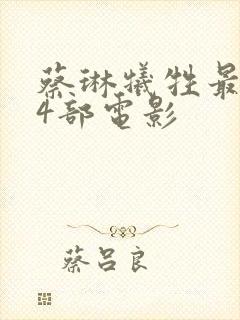 蔡琳犧牲最
4部電影
蔡呂良